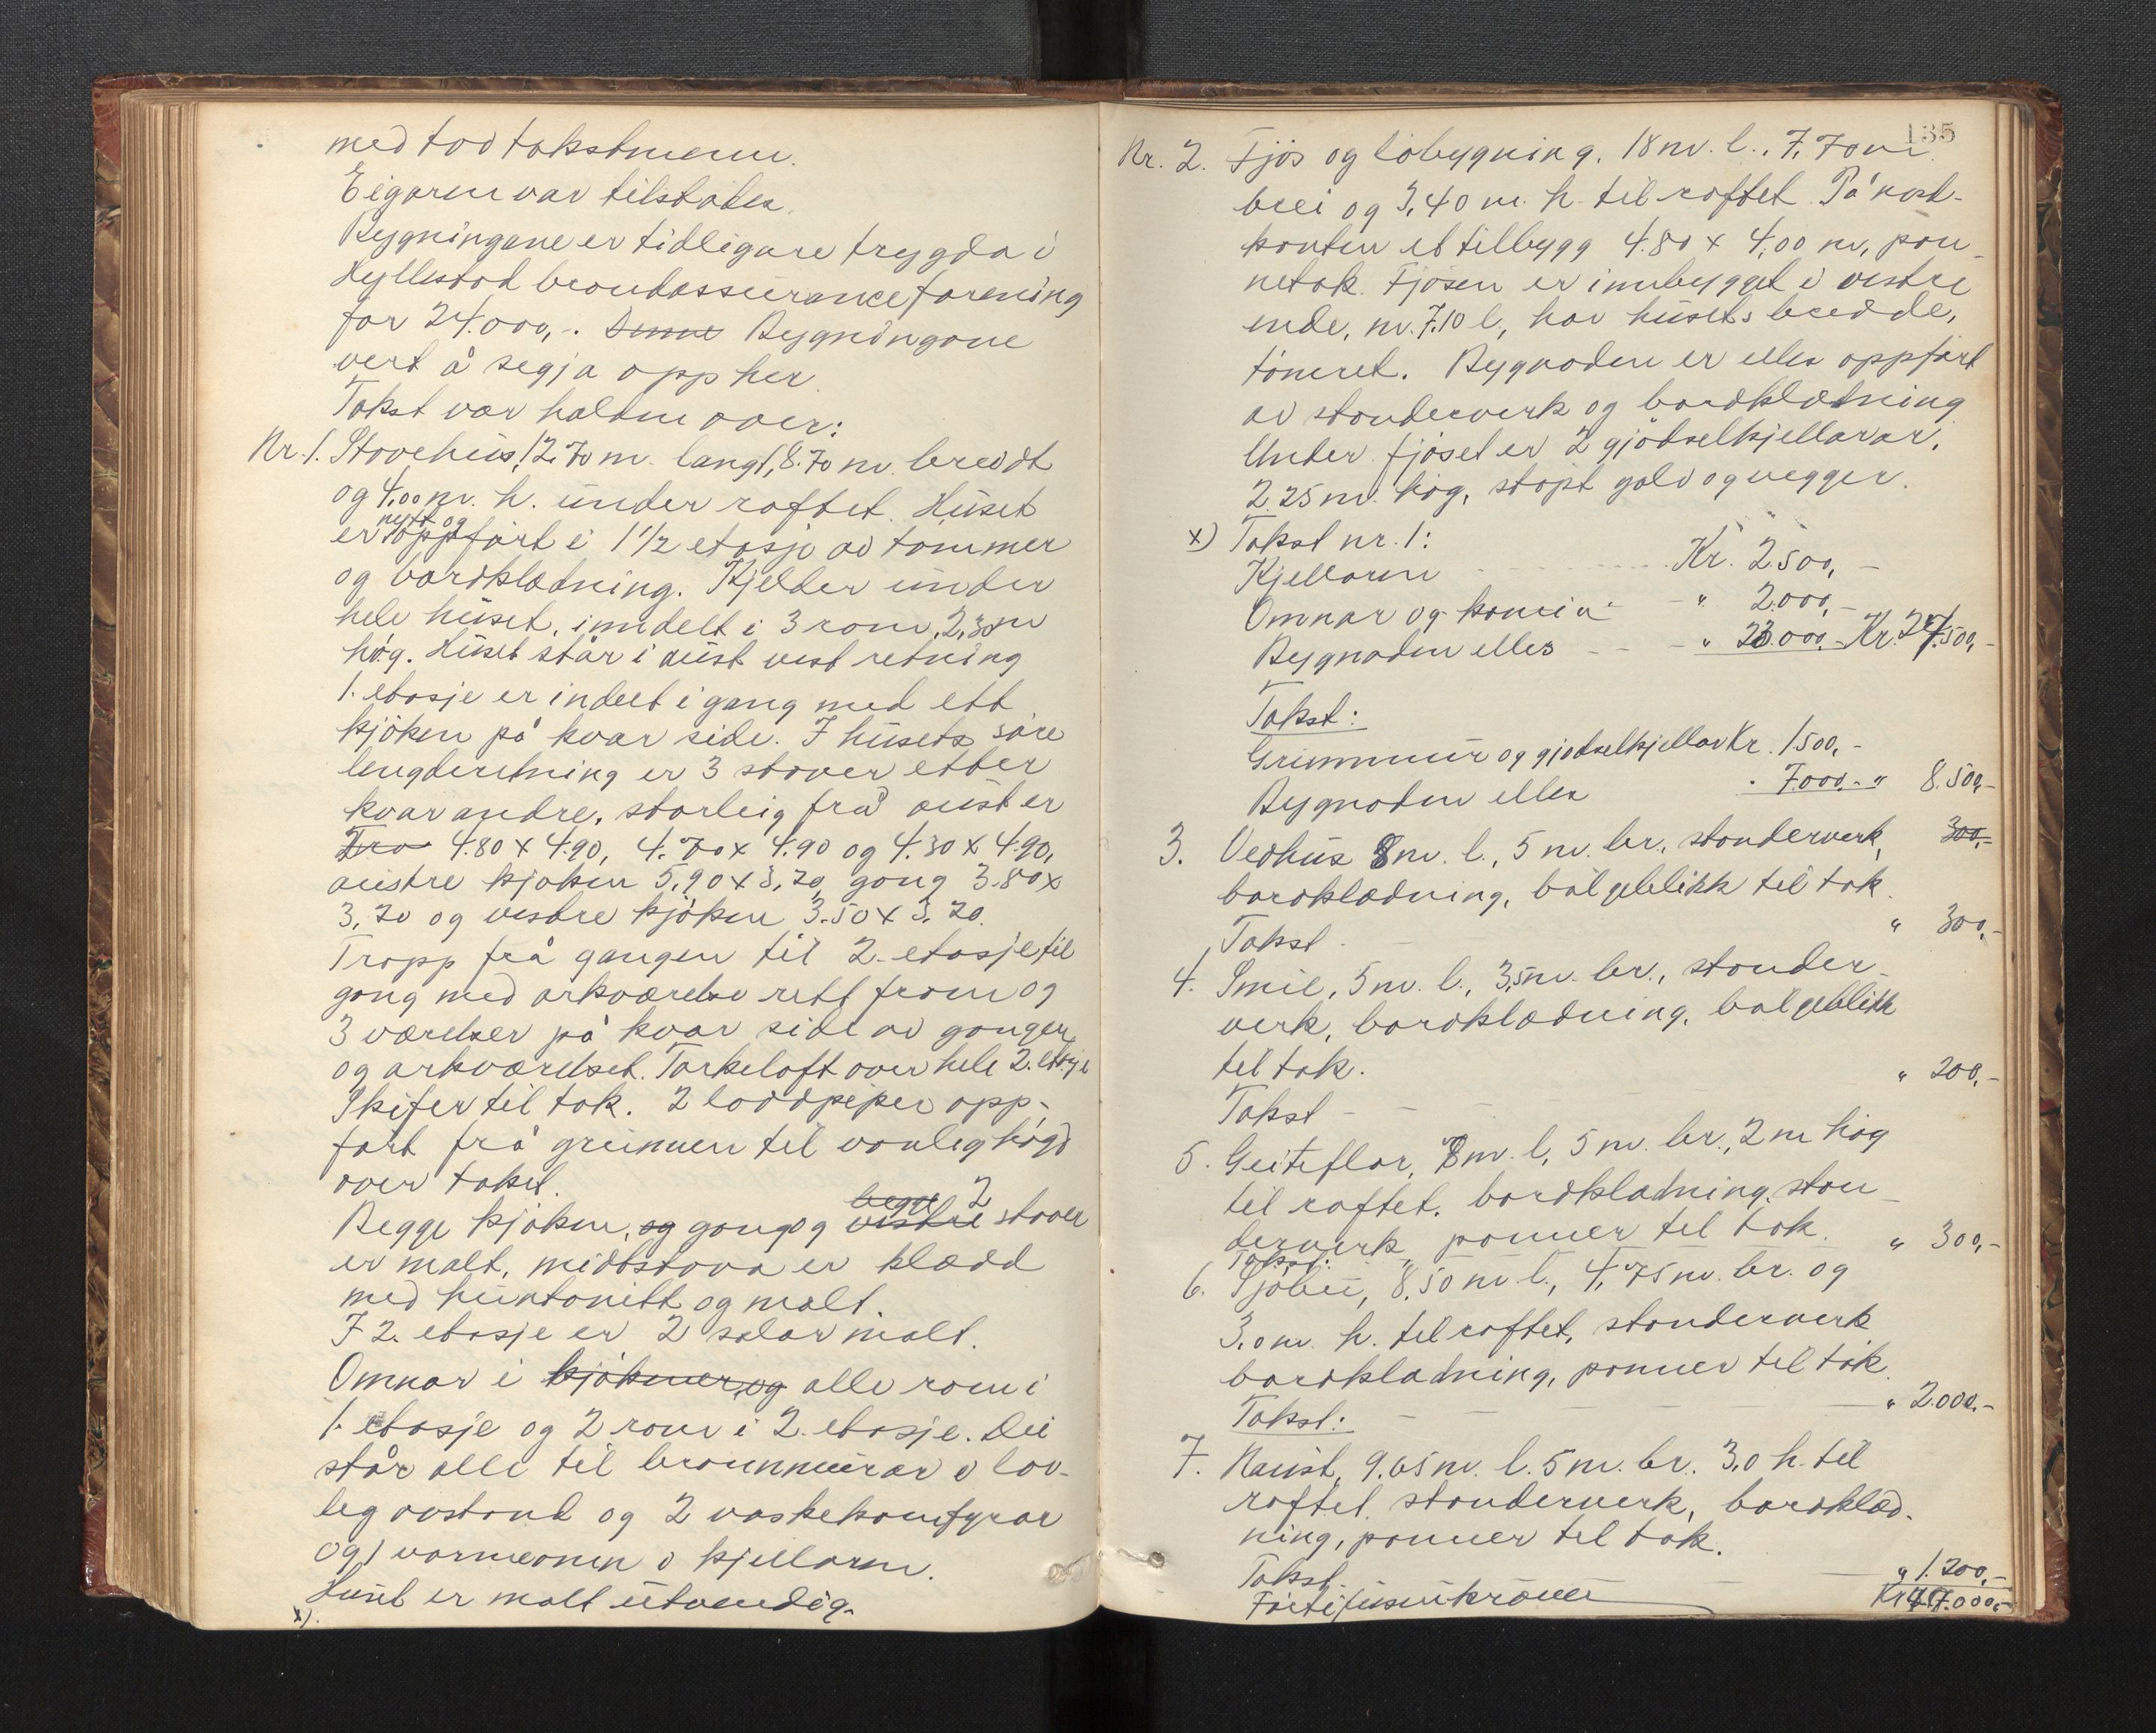 med tvo takstmenn.
Eigaren var tilstades.
Bygningane er tidligare trygda i
Hyllestad brandassuranceforening
for 24.000,-. Denne Bygningane
vert å segja opp her.
Takst var halden over:
Nr. 1. Stovehus, 12.70 m. langt, 8.70 m. breidt
og 4,00 m. h. under raftet. Huset
er nytt og oppført i 1 1/2 etasje av tømmer
og bordklædning. Kjelder under
hele huset, inndelt i 3 rom, 2,30 m
høg. Huset står i aust vest retning
1. etasje er indelt i gang med ett
kjøken på kvar side. I husets søre
lengderetning er 3 stover etter
kvarandre, storleig frå aust er
Fra 4.80 x 4.90, 4.70 x 4.90 og 4.30 x 4.90,
austre kjøken 5,90 x 3,20, gang 3.80 x
3,20 og vestre kjøken 3.50 x 3.20.
Tropp frå gangen til 2. etasje til
gang med arkværelse rett fram og
3 værelser på kvar side av gangen
og arkværelset. Tørkeloft over hele 2. etasje
Skifer til tak. 2 loddpiper opp-
ført frå grunnen til vanleg høgd
over taket.
Begge kjøken, og gang og vestre begge 2 stover
er malt, midtstova er klædd
med huntonitt og malt.
I 2. etasje er 2 salar malt.
Omnar i kjøkener, og alle rom i
1. etasje og 2 rom i 2. etasje. Dei
står alle til brannmurar i lov-
leg avstand og 2 vaskekomfyrar
og 1 varmeomn i kjellaren.
Huset er malt utvendig.
x).
135
Nr. 2. Fjøs og løbygning. 18 m. l., 7,70 m
brei og 3,40 m. h. til raftet. På nord-
kanten et tilbygg 4.80 x 4,00 m, pan-
netak. Fjøsen er innbygget i vestre
ende, m. 7.10 l, har husets breidde,
tømret. Bygnaden er elles oppført
av standerverk og bordklædning
Under fjøset er 2 gjødselkjellarar,
2.25 m. høg, støpt golv og vegger.
x) Takst nr. 1:
Kjellaren - - - Kr. 2.500,-
Omnar og komin - - " 2.000,-
Bygnaden elles - - - " 23.000,- Kr. 27.500,-
Takst:
Grunnmur og gjødselkjellar Kr. 1.500,-
Bygnaden elles " 7.000,- " 8.500,-
3. Vedhus 8 m. l., 5 m. br., standerverk, 300,-
bordklædning, bølgeblikk til tak.
Takst - " 300,-
4. Smie, 5 m. l., 3,5 m. br., stander-
verk, bordklædning, bølgeblikk
til tak.
Takst - - - " 200,-
5. Geiteflor, 8 m. l, 5 m. br., 2 m høg
til raftet. bordklædning, stan-
derverk, panner til tak.
Takst: " 300,-
6. Sjøbu, 8.50 m l., 4,75 m. br. og
3.0 m. h. til raftet, standerverk
bordklædning, panner til tak.
Takst: - - - " 2.000.-
7. Naust, 9.65 m. l. 5 m. br. 3,0 h. til
raftet. standerverk, bordklæd-
ning, panner til tak.
Takst. " 1.200,-
Førtifusenkroner Kr 40.000,-